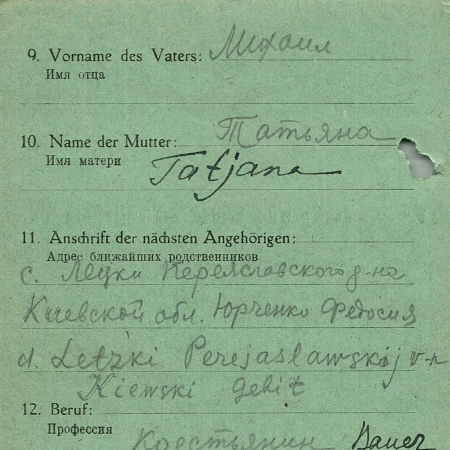 9. Vorname des Vaters: Михаил
Имя отца
10. Name der Mutter: Татьяна
Имя матери Tatjana
11. Anschrift der nächsten Angehörigen:
Адрес ближайших родственников
с. Лецки Переяславского р-на
Киевской обл. Юрченко Федосия
d. Letzki Perejaslawskij
Kiewski Gebit
12. Beruf:
Профессия Крестьянин Bauer